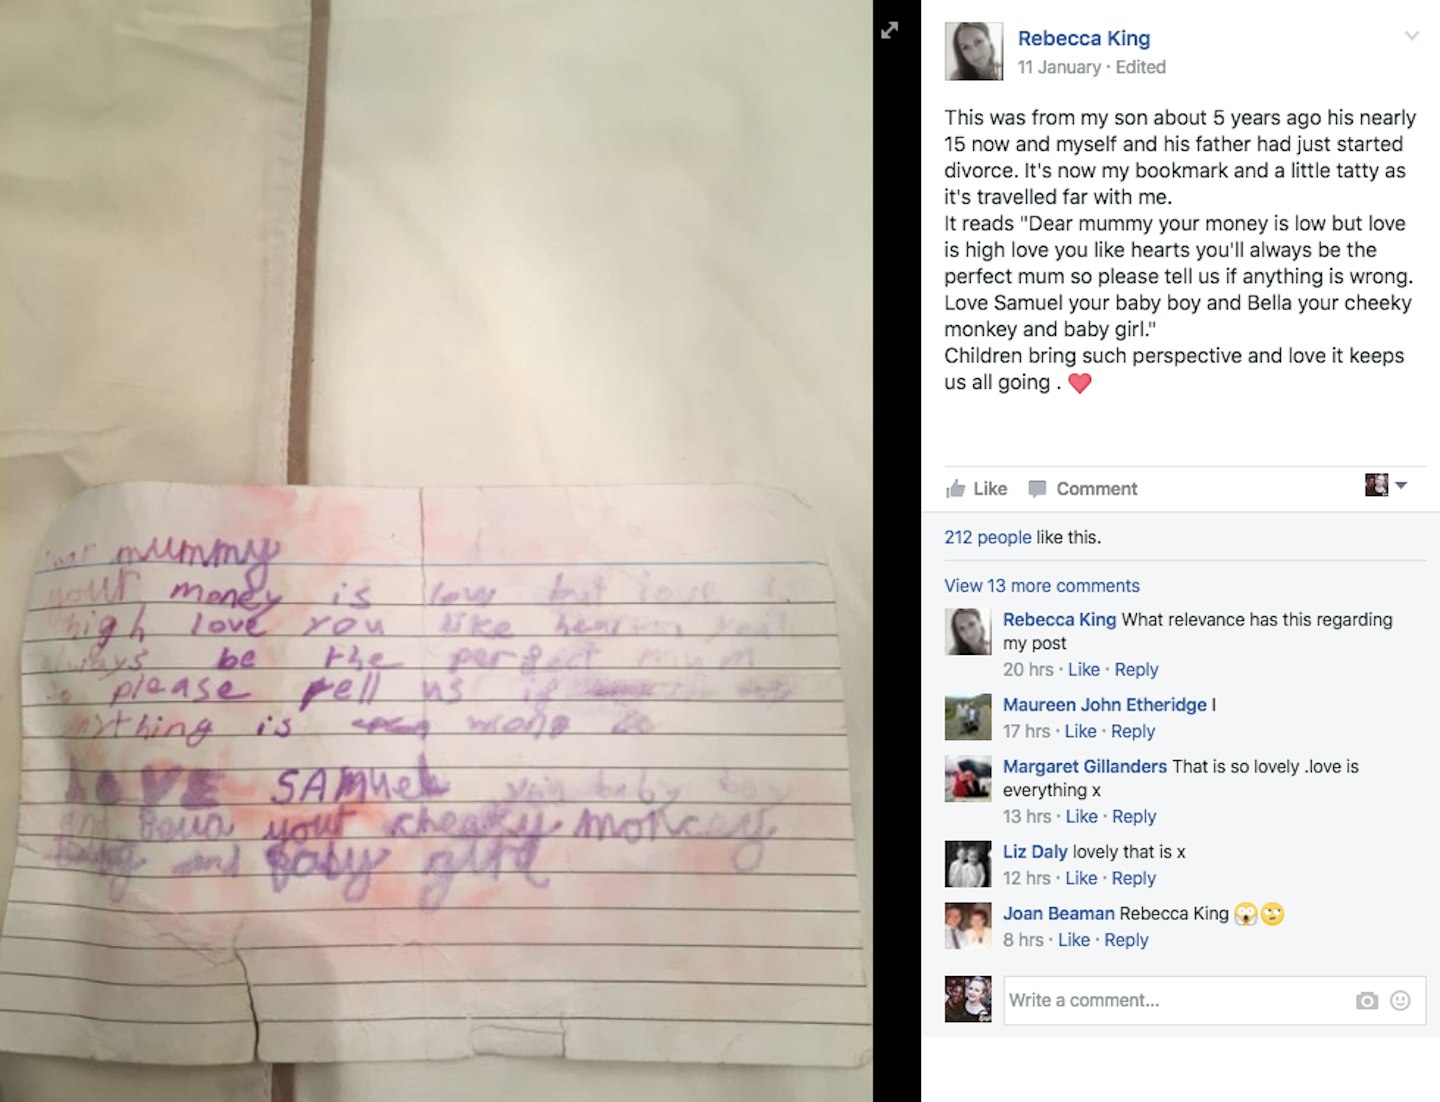 mummy
your money is low but love is
high love you like hearts you'll
always be the perfect mum
so please tell us if
anything is wrong
LOVE SAMUEL your baby boy
and Bella your cheaky moncey
and baby girl
Rebecca King
11 January · Edited
This was from my son about 5 years ago his nearly
15 now and myself and his father had just started
divorce. It's now my bookmark and a little tatty as
it's travelled far with me.
It reads "Dear mummy your money is low but love
is high love you like hearts you'll always be the
perfect mum so please tell us if anything is wrong.
Love Samuel your baby boy and Bella your cheeky
monkey and baby girl."
Children bring such perspective and love it keeps
us all going . ❤️
Like Comment
212 people like this.
View 13 more comments
Rebecca King What relevance has this regarding
my post
20 hrs · Like · Reply
Maureen John Etheridge I
17 hrs · Like · Reply
Margaret Gillanders That is so lovely .love is
everything x
13 hrs · Like · Reply
Liz Daly lovely that is x
12 hrs · Like · Reply
Joan Beaman Rebecca King 😱🙄
8 hrs · Like · Reply
Write a comment...